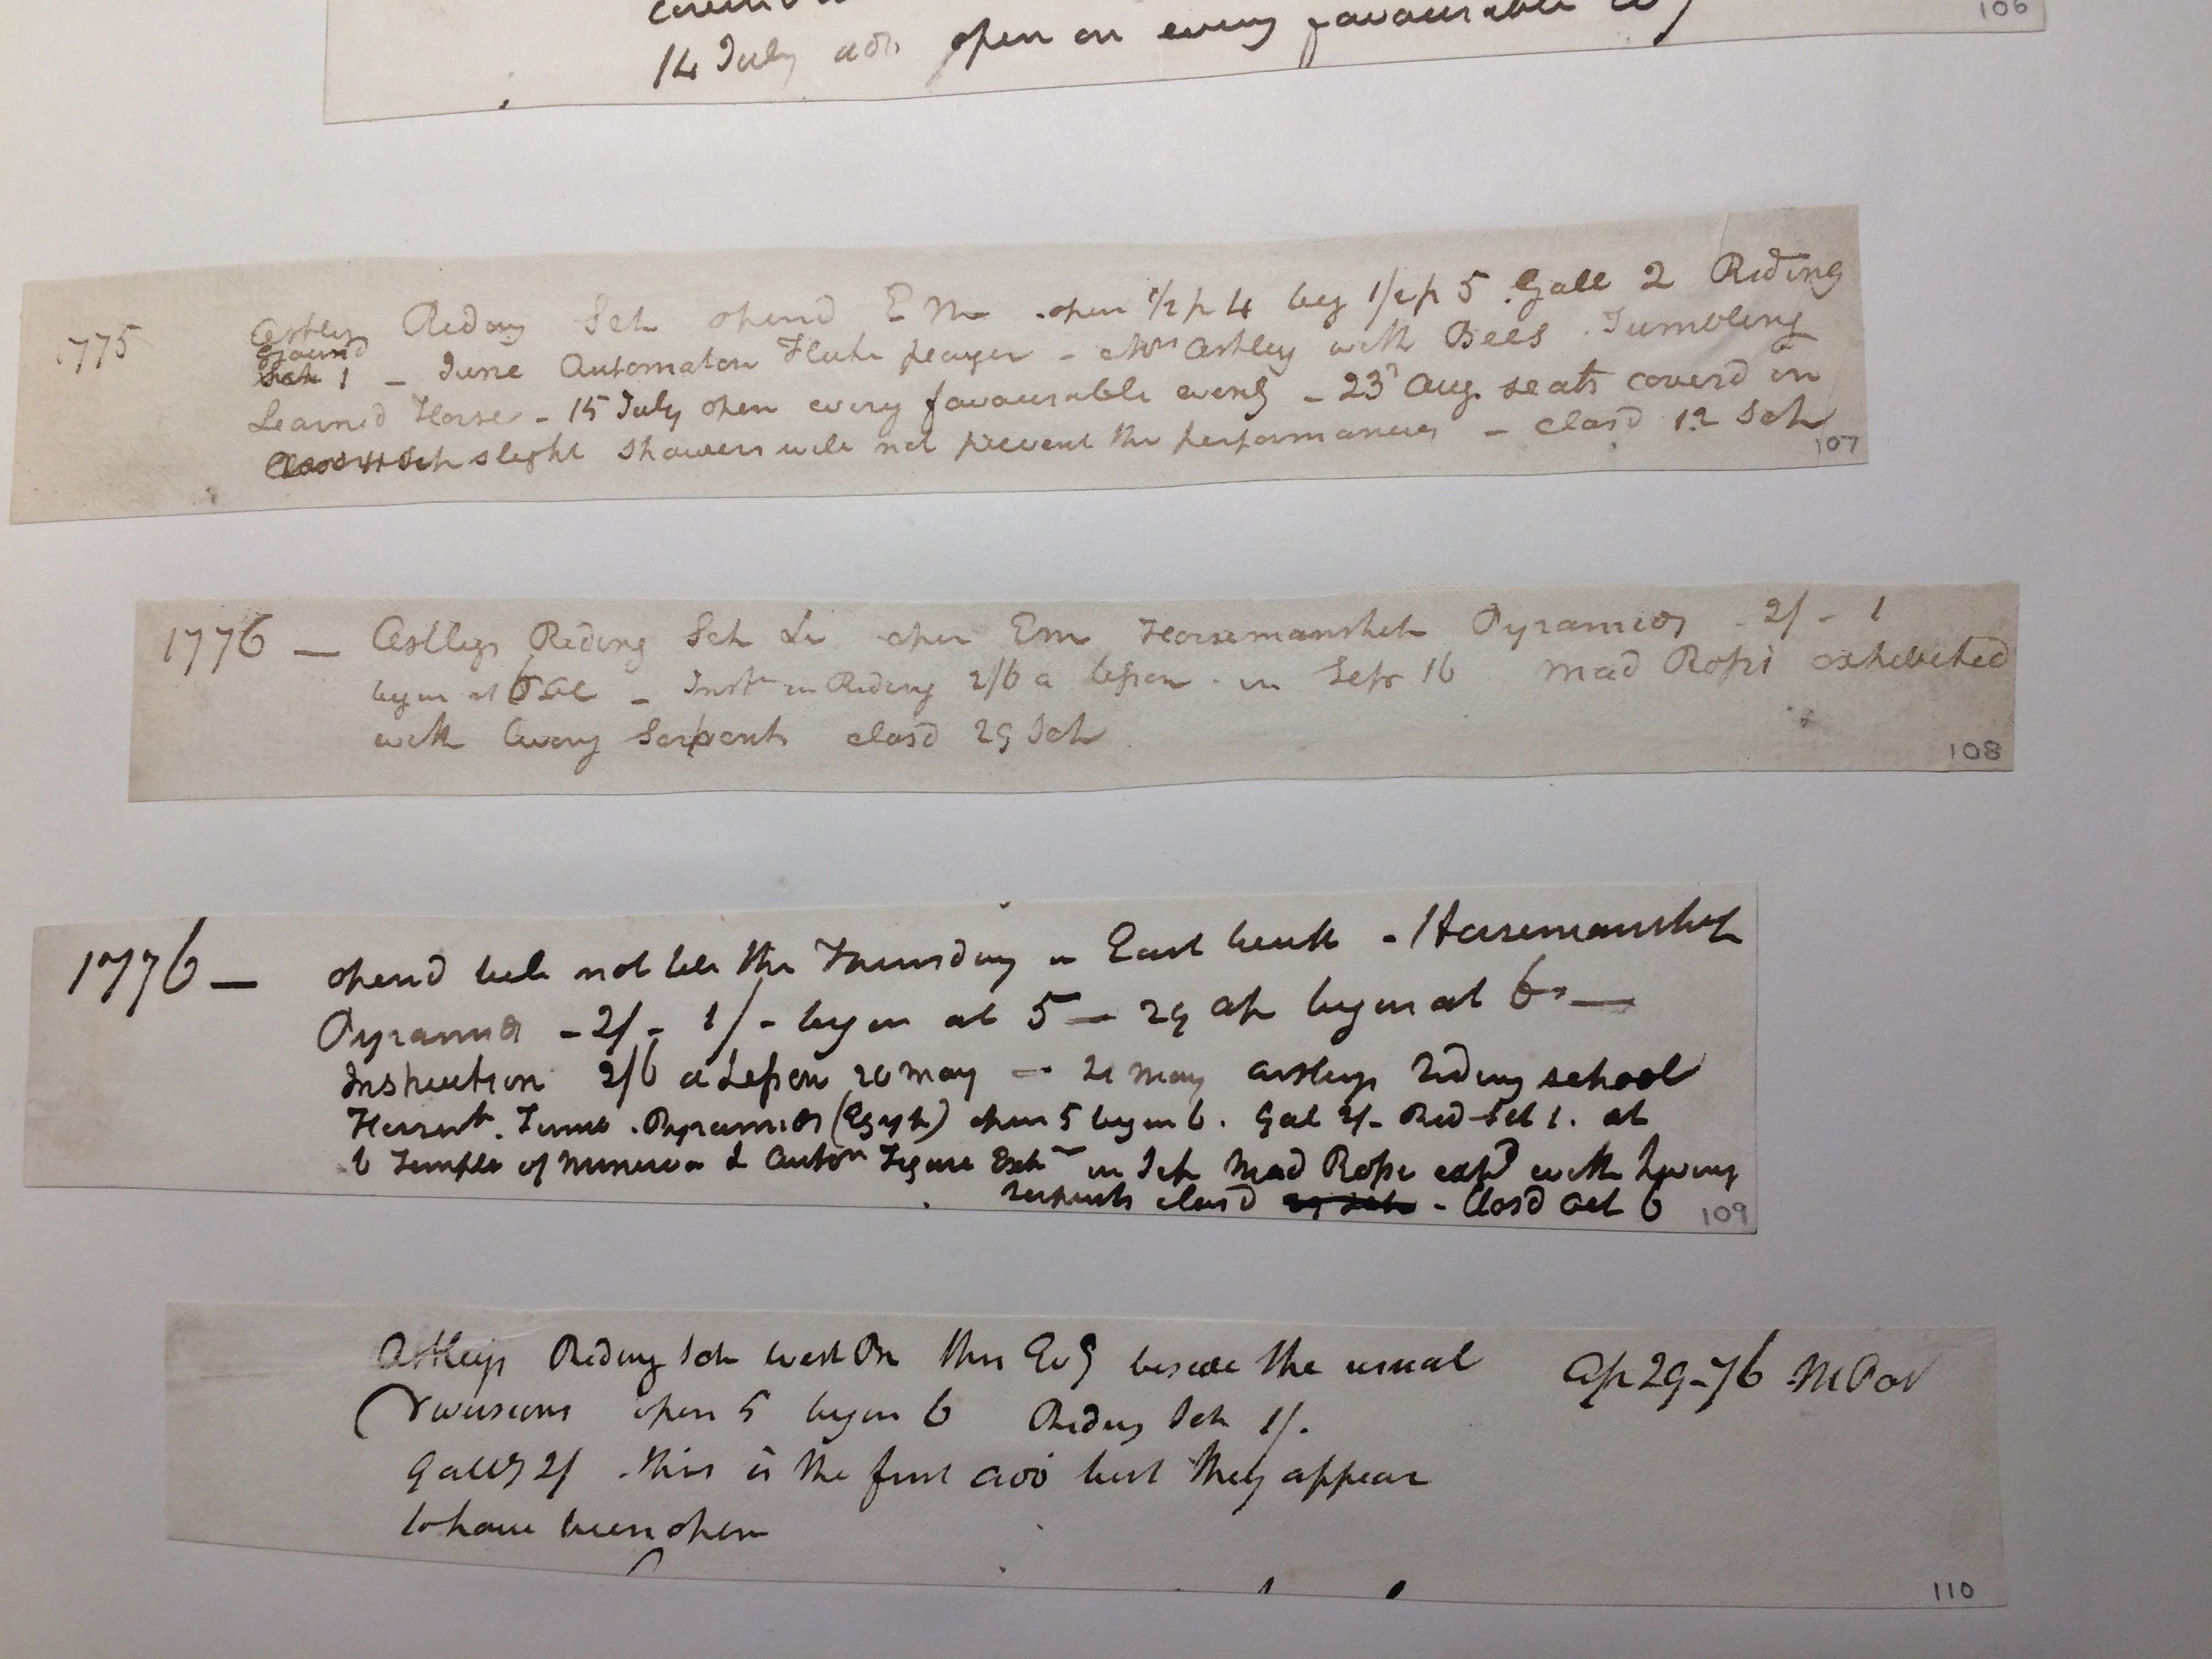 14 July open on every favourable
106
1775
Astleys Riding Sch opend E M open 1/2 p 4 beg 1/2 p 5 Gall 2 Riding
Ground
Sch 1 – June Automaton Flute player – Mrs Astley with Bees Tumbling
Learned Horse – 15 July open every favourable eveng – 23d Aug. seats coverd in
slight showers will not prevent the performances – closd 12 Sep
107
1776 — Astleys Riding Sch open Em Horsemanship Pyramids – 2/ – 1
begin at 6 – Instn in Riding 2/6 a lesson in Sepr 16 Mad Rossi exhibited
with living Serpents closd 29 Sep
108
1776 — opend but not till the Thursday in East week – Horsemanship
Pyramids – 2/ – 1/ – begin at 5 — 29 ap begin at 6 —
Instruction 2/6 a Lesson 20 May — 21 May Astleys Riding School
Horsem. Tumb. Pyramids (Egyp) open 5 begin 6. Gal 2/– Rid Sch 1. at
6 Temple of Minerva & Auton Figure Exh in Sep Mad Rossi exhd with living
serpents closd – Closd Oct 6
109
Astleys Riding Sch West Br this Evg beside the usual Ap 29–76 M Post
Diversions open 5 begin 6 Riding Sch 1/.
Gally 2/ . this is the first adv but they appear
to have been open
110